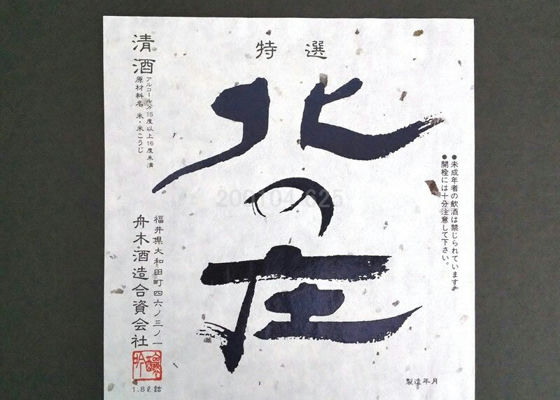 特選
北の庄
●未成年者の飲酒は禁じられています
●開栓には十分注意して下さい。
清酒
アルコール分15度以上16度未満
原材料名 米・米こうじ
福井県大和田町四六ノ三ノ一
舟木酒造合資会社
1.8ℓ詰
製造年月